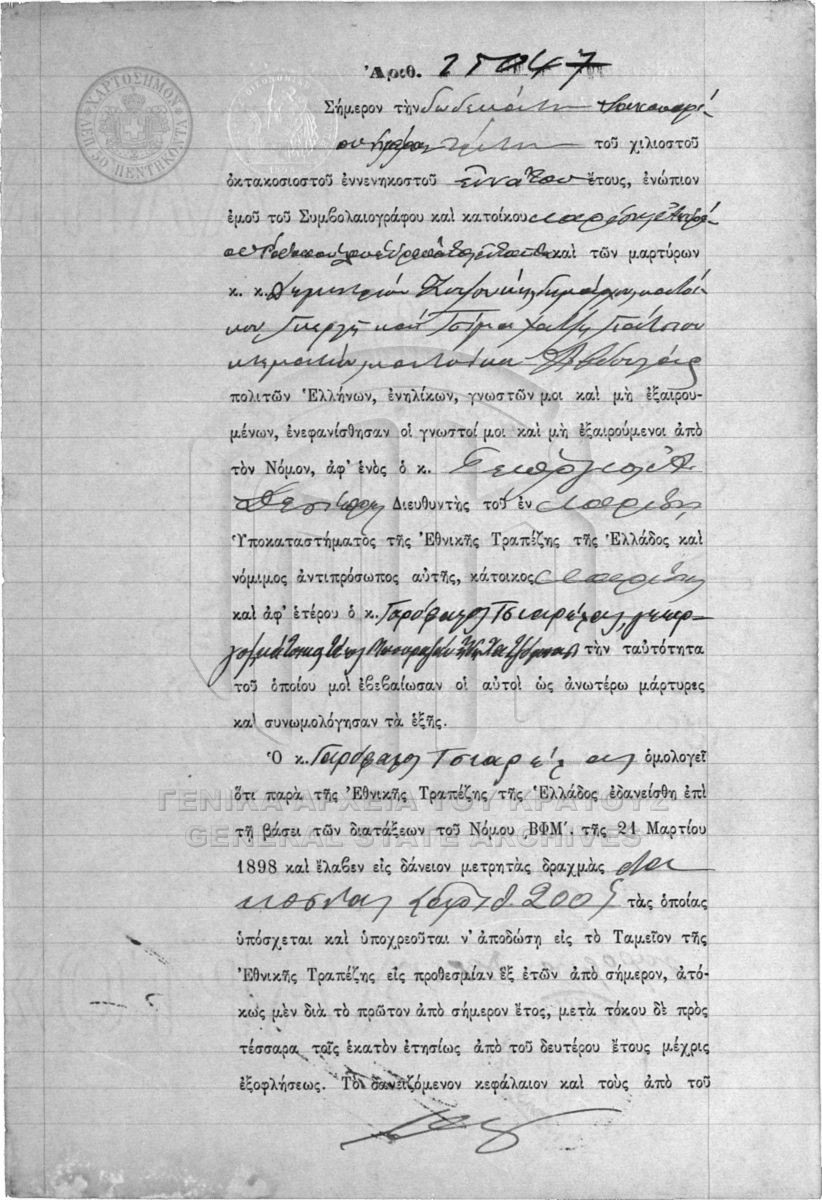 Ἀριθ. 25047
Σήμερον τὴν δωδεκάτην Ἰανουαρί-
ου ἡμέραν τρίτην τοῦ χιλιοστοῦ
ὀκτακοσιοστοῦ ἐννενηκοστοῦ ἐννάτου ἔτους, ἐνώπιον
ἐμοῦ τοῦ Συμβολαιογράφου καὶ κατοίκου Λαρίσης
καὶ τῶν μαρτύρων
κ. κ. Δημητρίου δημάρχου κατοί-
κου καὶ
κτηματίου κατοίκου
πολιτῶν Ἑλλήνων, ἐνηλίκων, γνωστῶν μοι καὶ μὴ ἐξαιρου-
μένων, ἐνεφανίσθησαν οἱ γνωστοί μοι καὶ μὴ ἐξαιρούμενοι ἀπὸ
τὸν Νόμον, ἀφ' ἑνὸς ὁ κ. Γεώργιος
Διευθυντὴς τοῦ ἐν Λαρίσῃ
Ὑποκαταστήματος τῆς Ἐθνικῆς Τραπέζης τῆς Ἑλλάδος καὶ
νόμιμος ἀντιπρόσωπος αὐτῆς, κάτοικος Λαρίσης
καὶ ἀφ' ἑτέρου ὁ κ. Γαρόφαλος γεωρ-
γὸς κάτοικος τὴν ταὐτότητα
τοῦ ὁποίου μοὶ ἐβεβαίωσαν οἱ αὐτοὶ ὡς ἀνωτέρω μάρτυρες
καὶ συνωμολόγησαν τὰ ἑξῆς.
Ὁ κ. Γαρόφαλος ὁμολογεῖ
ὅτι παρὰ τῆς Ἐθνικῆς Τραπέζης τῆς Ἑλλάδος ἐδανείσθη ἐπὶ
τῇ βάσει τῶν διατάξεων τοῦ Νόμου ͵ΒΦΜ΄. τῆς 21 Μαρτίου
1898 καὶ ἔλαβεν εἰς δάνειον μετρητὰς δραχμὰς δια-
κοσίας (ἀριθ. 200) τὰς ὁποίας
ὑπόσχεται καὶ ὑποχρεοῦται ν' ἀποδώσῃ εἰς τὸ Ταμεῖον τῆς
Ἐθνικῆς Τραπέζης εἰς προθεσμίαν ἓξ ἐτῶν ἀπὸ σήμερον, ἀτό-
κως μὲν διὰ τὸ πρῶτον ἀπὸ σήμερον ἔτος, μετὰ τόκου δὲ πρὸς
τέσσαρα τοῖς ἑκατὸν ἐτησίως ἀπὸ τοῦ δευτέρου ἔτους μέχρις
ἐξοφλήσεως. Τὸ δανειζόμενον κεφάλαιον καὶ τοὺς ἀπὸ τοῦ
ΧΑΡΤΟΣΗΜΟΝ
ΛΕΠ. 50 ΠΕΝΤΗΚΟΝΤΑ
ΓΕΝΙΚΑ ΑΡΧΕΙΑ ΤΟΥ ΚΡΑΤΟΥΣ
GENERAL STATE ARCHIVES